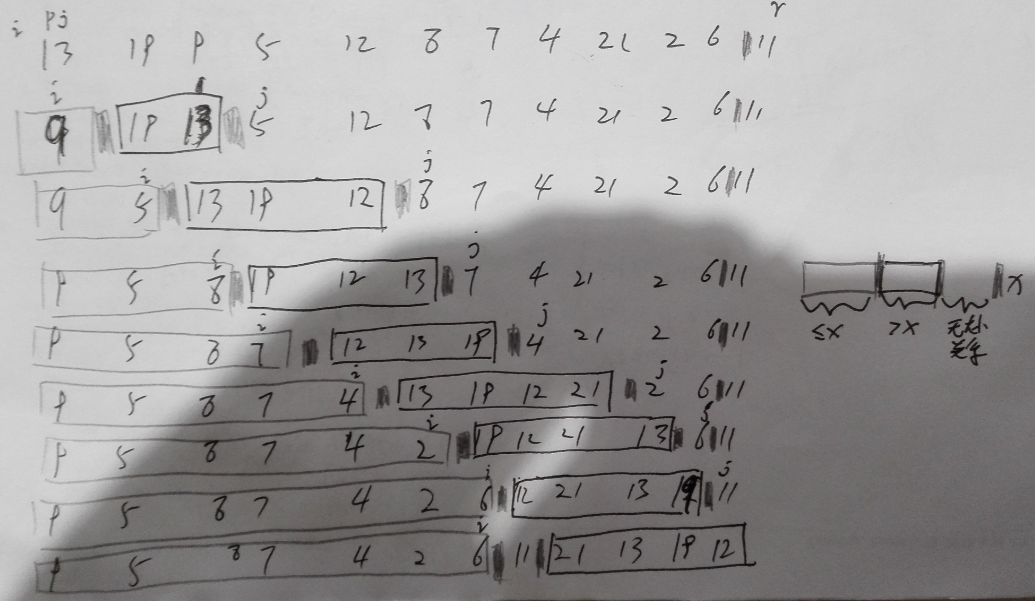 i p j r
13 19 9 5 12 8 7 4 21 2 6 11
i j
9 19 13 5 12 8 7 4 21 2 6 11
i j
9 5 13 19 12 8 7 4 21 2 6 11
i j
9 5 8 19 12 13 7 4 21 2 6 11
i j
9 5 8 7 12 13 19 4 21 2 6 11
i j
9 5 8 7 4 13 19 12 21 2 6 11
i j
9 5 8 7 4 2 19 12 21 13 6 11
i j
9 5 8 7 4 2 6 12 21 13 19 11
i
9 5 8 7 4 2 6 11 21 13 19 12
x
≤x >x 无大小
关系